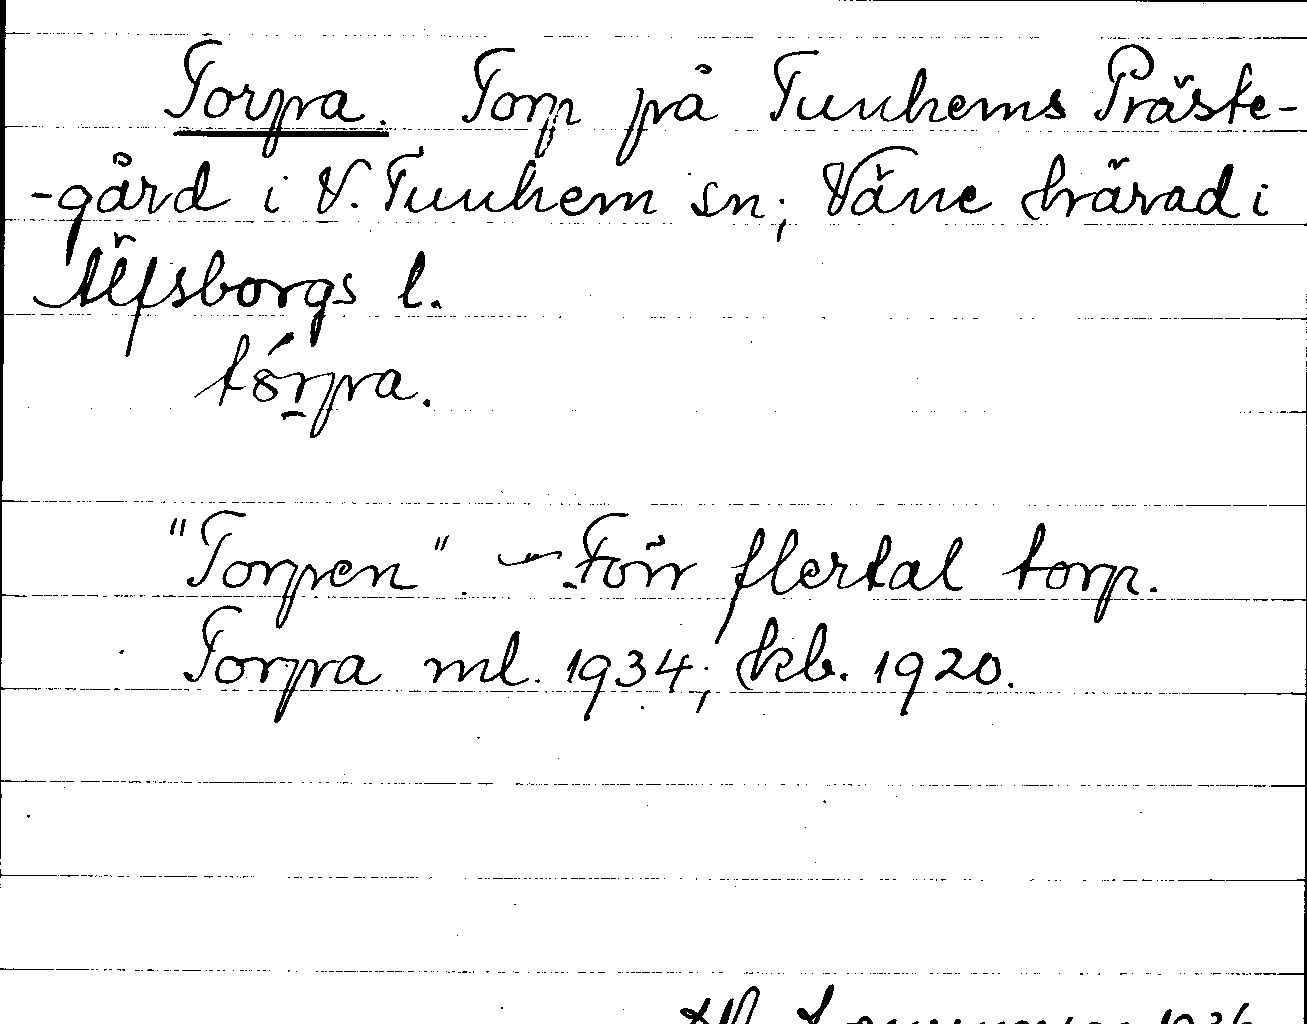 Torpa. Torp på Tunhems Präste-
-gård i V. Tunhem sn; Väne härad i
Älfsborgs l.
tórpa.
"Torpen". - Förr flertal torp.
Torpa ml. 1934; kb. 1920.
1936